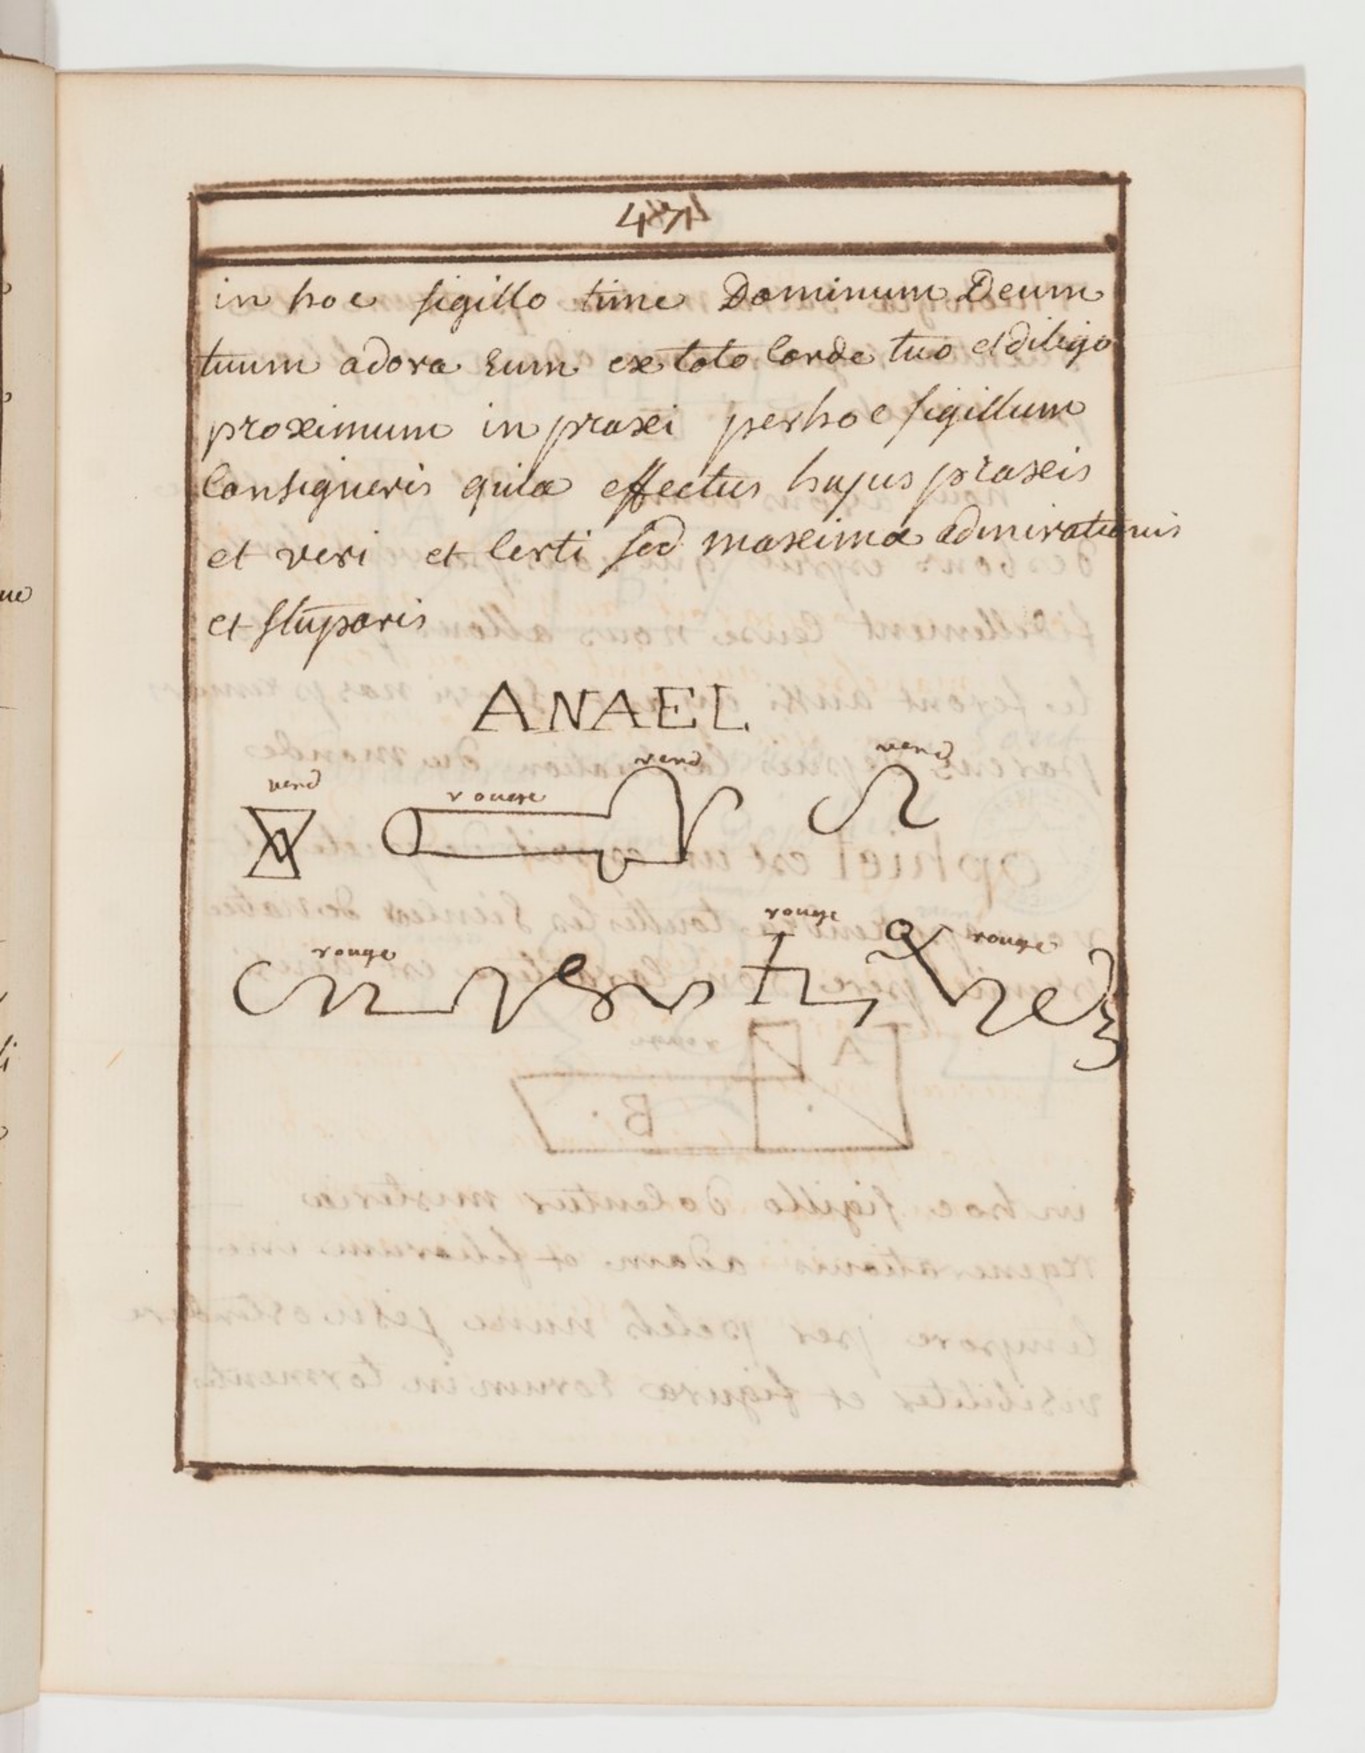 47
in hoc sigillo time Dominum Deum
tuum adora Eum ex toto Corde tuo et diligo
proximum in praxi per hoc sigillum
Consigneris quia effectus hujus praxeis
et veri et Certi sed maxima admirationis
et stuporis
ANAEL
verd rouge verd verd
rouge rouge rouge